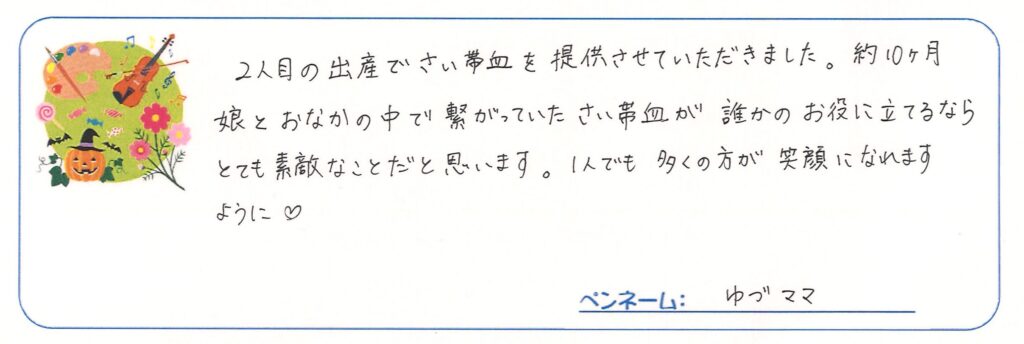 2人目の出産でさい帯血を提供させていただきました。約10ヶ月
娘とおなかの中で繋がっていたさい帯血が誰かのお役に立てるなら
とても素敵なことだと思います。1人でも多くの方が笑顔になれます
ように♡
ペンネーム: ゆづママ